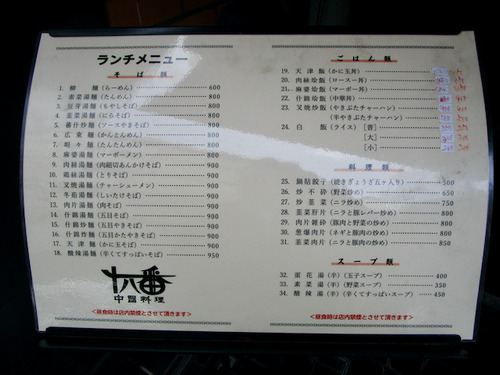 ランチメニュー
そ ば 類
1. 柳 麺 (らーめん) 600
2. 素菜湯麺 (たんめん) 800
3. 豆芽湯麺 (もやしそば) 800
4. 韮菜湯麺 (にらそば) 800
5. 蕃什炒麺 (ソースやきそば) 800
6. 広東麺 (かんとんめん) 800
7. 坦々麺 (たんたんめん) 800
8. 麻婆湯麺 (マーボーメン) 800
9. 肉絲湯麺 (肉細切あんかけそば) 900
10. 鶏絲湯麺 (とりそば) 900
11. 叉焼湯麺 (チャーシューメン) 900
12. 冬菇湯麺 (しいたけそば) 900
13. 肉片湯麺 (肉そば) 900
14. 什錦湯麺 (五目そば) 900
15. 什錦炒麺 (五目やきそば) 950
16. 什錦炸麺 (五目かたやきそば) 950
17. 天津麺 (かに玉そば) 950
18. 酸辣湯麺 (辛くてすっぱいそば) 950
十八番
中国料理
<昼食時は店内禁煙とさせて頂きます>
ご は ん 類
19. 天津飯 (かに玉丼)
20. 肉絲烩飯 (ロースー丼)
21. 麻婆烩飯 (マーボー丼)
22. 什錦烩飯 (中華丼)
23. 叉焼炒飯 (やきぶたチャーハン)
(半やきぶたチャーハン)
24. 白飯 (ライス) [普]
[大]
[小]
料 理 類
25. 鍋貼餃子 (焼きぎょうざ五ヶ入り) 500
26. 炒不砕 (野菜炒め) 650
27. 炒韮菜 (ニラ炒め) 750
28. 韮菜肝片 (ニラと豚レバー炒め) 800
29. 肉片雑砕 (豚肉と野菜の炒め) 800
30. 葱爆肉片 (ネギと豚肉の炒め) 850
31. 韮菜肉片 (ニラと豚肉の炒め) 850
ス ー プ 類
32. 蛋花湯 (半) (玉子スープ) 350
33. 素菜湯 (半) (野菜スープ) 350
34. 酸辣湯 (半) (辛くてすっぱいスープ) 450
<昼食時は店内禁煙とさせて頂きます>